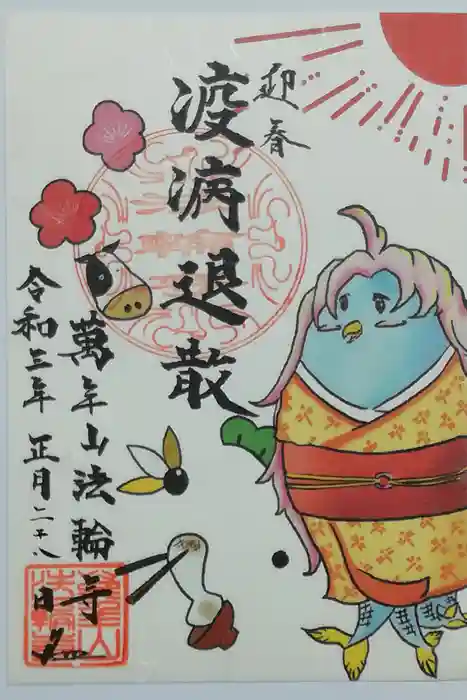 迎春
疫病退散
萬年山法輪寺
令和三年 正月二十八日